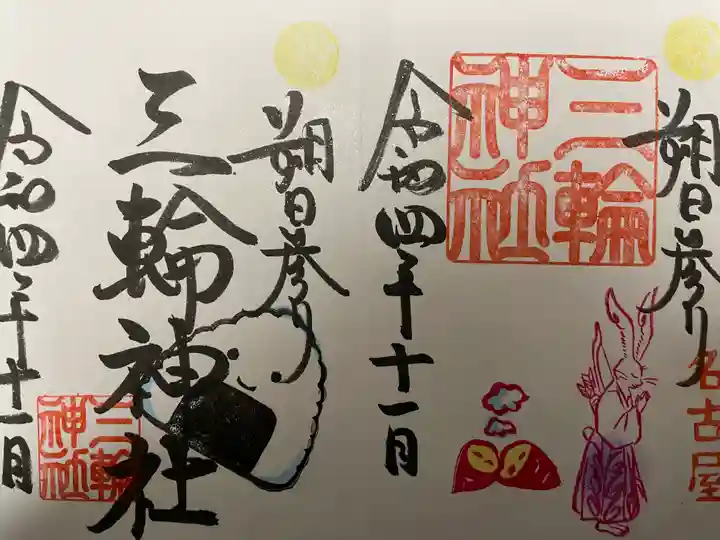 朔日参り
名古屋
三輪神社
令和四年十一月
朔日参り
三輪神社
三輪神社
令和四年十一月